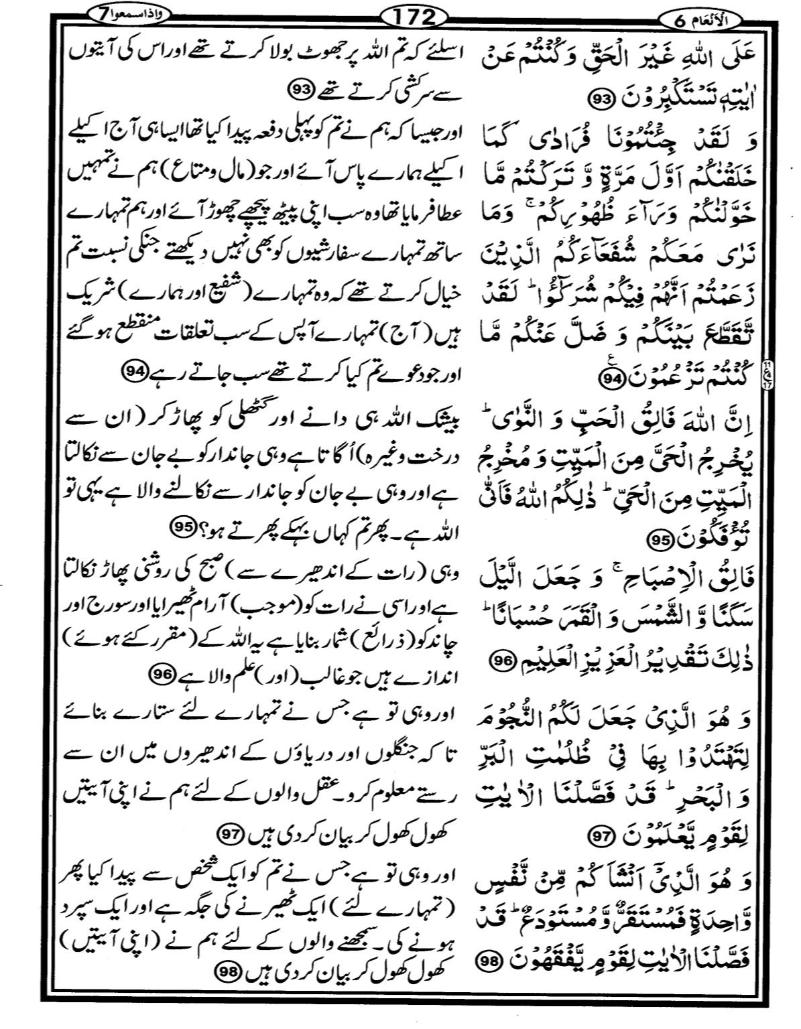 الانعام 6
172
واذاسمعوا 7
عَلَى اللّٰهِ غَيْرَ الْحَقِّ وَ كُنْتُمْ عَنْ
اٰيٰتِهٖ تَسْتَكْبِرُوْنَ 93
وَ لَقَدْ جِئْتُمُوْنَا فُرَادٰى كَمَا
خَلَقْنٰكُمْ اَوَّلَ مَرَّةٍ وَّ تَرَكْتُمْ مَّا
خَوَّلْنٰكُمْ وَرَآءَ ظُهُوْرِكُمْ ۚ وَمَا
نَرٰى مَعَكُمْ شُفَعَآءَكُمُ الَّذِيْنَ
زَعَمْتُمْ اَنَّهُمْ فِيْكُمْ شُرَكٰٓؤُا ؕ لَقَدْ
تَّقَطَّعَ بَيْنَكُمْ وَ ضَلَّ عَنْكُمْ مَّا
كُنْتُمْ تَزْعُمُوْنَ 94 ع
اِنَّ اللّٰهَ فَالِقُ الْحَبِّ وَ النَّوٰى ؕ
يُخْرِجُ الْحَىَّ مِنَ الْمَيِّتِ وَ مُخْرِجُ
الْمَيِّتِ مِنَ الْحَىِّ ؕ ذٰلِكُمُ اللّٰهُ فَاَنّٰى
تُؤْفَكُوْنَ 95
فَالِقُ الْاِصْبَاحِ ۚ وَ جَعَلَ الَّيْلَ
سَكَنًا وَّ الشَّمْسَ وَ الْقَمَرَ حُسْبَانًا ؕ
ذٰلِكَ تَقْدِيْرُ الْعَزِيْزِ الْعَلِيْمِ 96
وَ هُوَ الَّذِىْ جَعَلَ لَكُمُ النُّجُوْمَ
لِتَهْتَدُوْا بِهَا فِىْ ظُلُمٰتِ الْبَرِّ
وَ الْبَحْرِ ؕ قَدْ فَصَّلْنَا الْاٰيٰتِ
لِقَوْمٍ يَّعْلَمُوْنَ 97
وَ هُوَ الَّذِىْٓ اَنْشَاَ كُمْ مِّنْ نَّفْسٍ
وَّاحِدَةٍ فَمُسْتَقَرٌّ وَّ مُسْتَوْدَعٌ ؕ قَدْ
فَصَّلْنَا الْاٰيٰتِ لِقَوْمٍ يَّفْقَهُوْنَ 98
اسلئے کہ تم اللہ پر جھوٹ بولا کرتے تھے اور اس کی آیتوں
سے سرکشی کرتے تھے 93
اور جیسا کہ ہم نے تم کو پہلی دفعہ پیدا کیا تھا ایسا ہی آج اکیلے
اکیلے ہمارے پاس آئے اور جو (مال و متاع) ہم نے تمہیں
عطا فرمایا تھا وہ سب اپنی پیٹھ پیچھے چھوڑ آئے اور ہم تمہارے
ساتھ تمہارے سفارشیوں کو بھی نہیں دیکھتے جنکی نسبت تم
خیال کرتے تھے کہ وہ تمہارے (شفیع اور ہمارے) شریک
ہیں (آج) تمہارے آپس کے سب تعلقات منقطع ہو گئے
اور جو دعوے تم کیا کرتے تھے سب جاتے رہے 94
بیشک اللہ ہی دانے اور گٹھلی کو پھاڑ کر (ان سے
درخت وغیرہ) اُگاتا ہے وہی جاندار کو بے جان سے نکالتا
ہے اور وہی بے جان کو جاندار سے نکالنے والا ہے یہی تو
اللہ ہے۔ پھر تم کہاں بہکے پھرتے ہو؟ 95
وہی (رات کے اندھیرے سے) صبح کی روشنی پھاڑ نکالتا
ہے اور اسی نے رات کو (موجب) آرام ٹھیرایا اور سورج اور
چاند کو (ذرائع) شمار بنایا ہے یہ اللہ کے (مقرر کئے ہوئے)
اندازے ہیں جو غالب (اور) علم والا ہے 96
اور وہی تو ہے جس نے تمہارے لئے ستارے بنائے
تا کہ جنگلوں اور دریاؤں کے اندھیروں میں ان سے
رستے معلوم کرو۔ عقل والوں کے لئے ہم نے اپنی آیتیں
کھول کھول کر بیان کر دی ہیں 97
اور وہی تو ہے جس نے تم کو ایک شخص سے پیدا کیا پھر
(تمہارے لئے) ایک ٹھیرنے کی جگہ ہے اور ایک سپرد
ہونے کی۔ سمجھنے والوں کے لئے ہم نے (اپنی آیتیں)
کھول کھول کر بیان کر دی ہیں 98